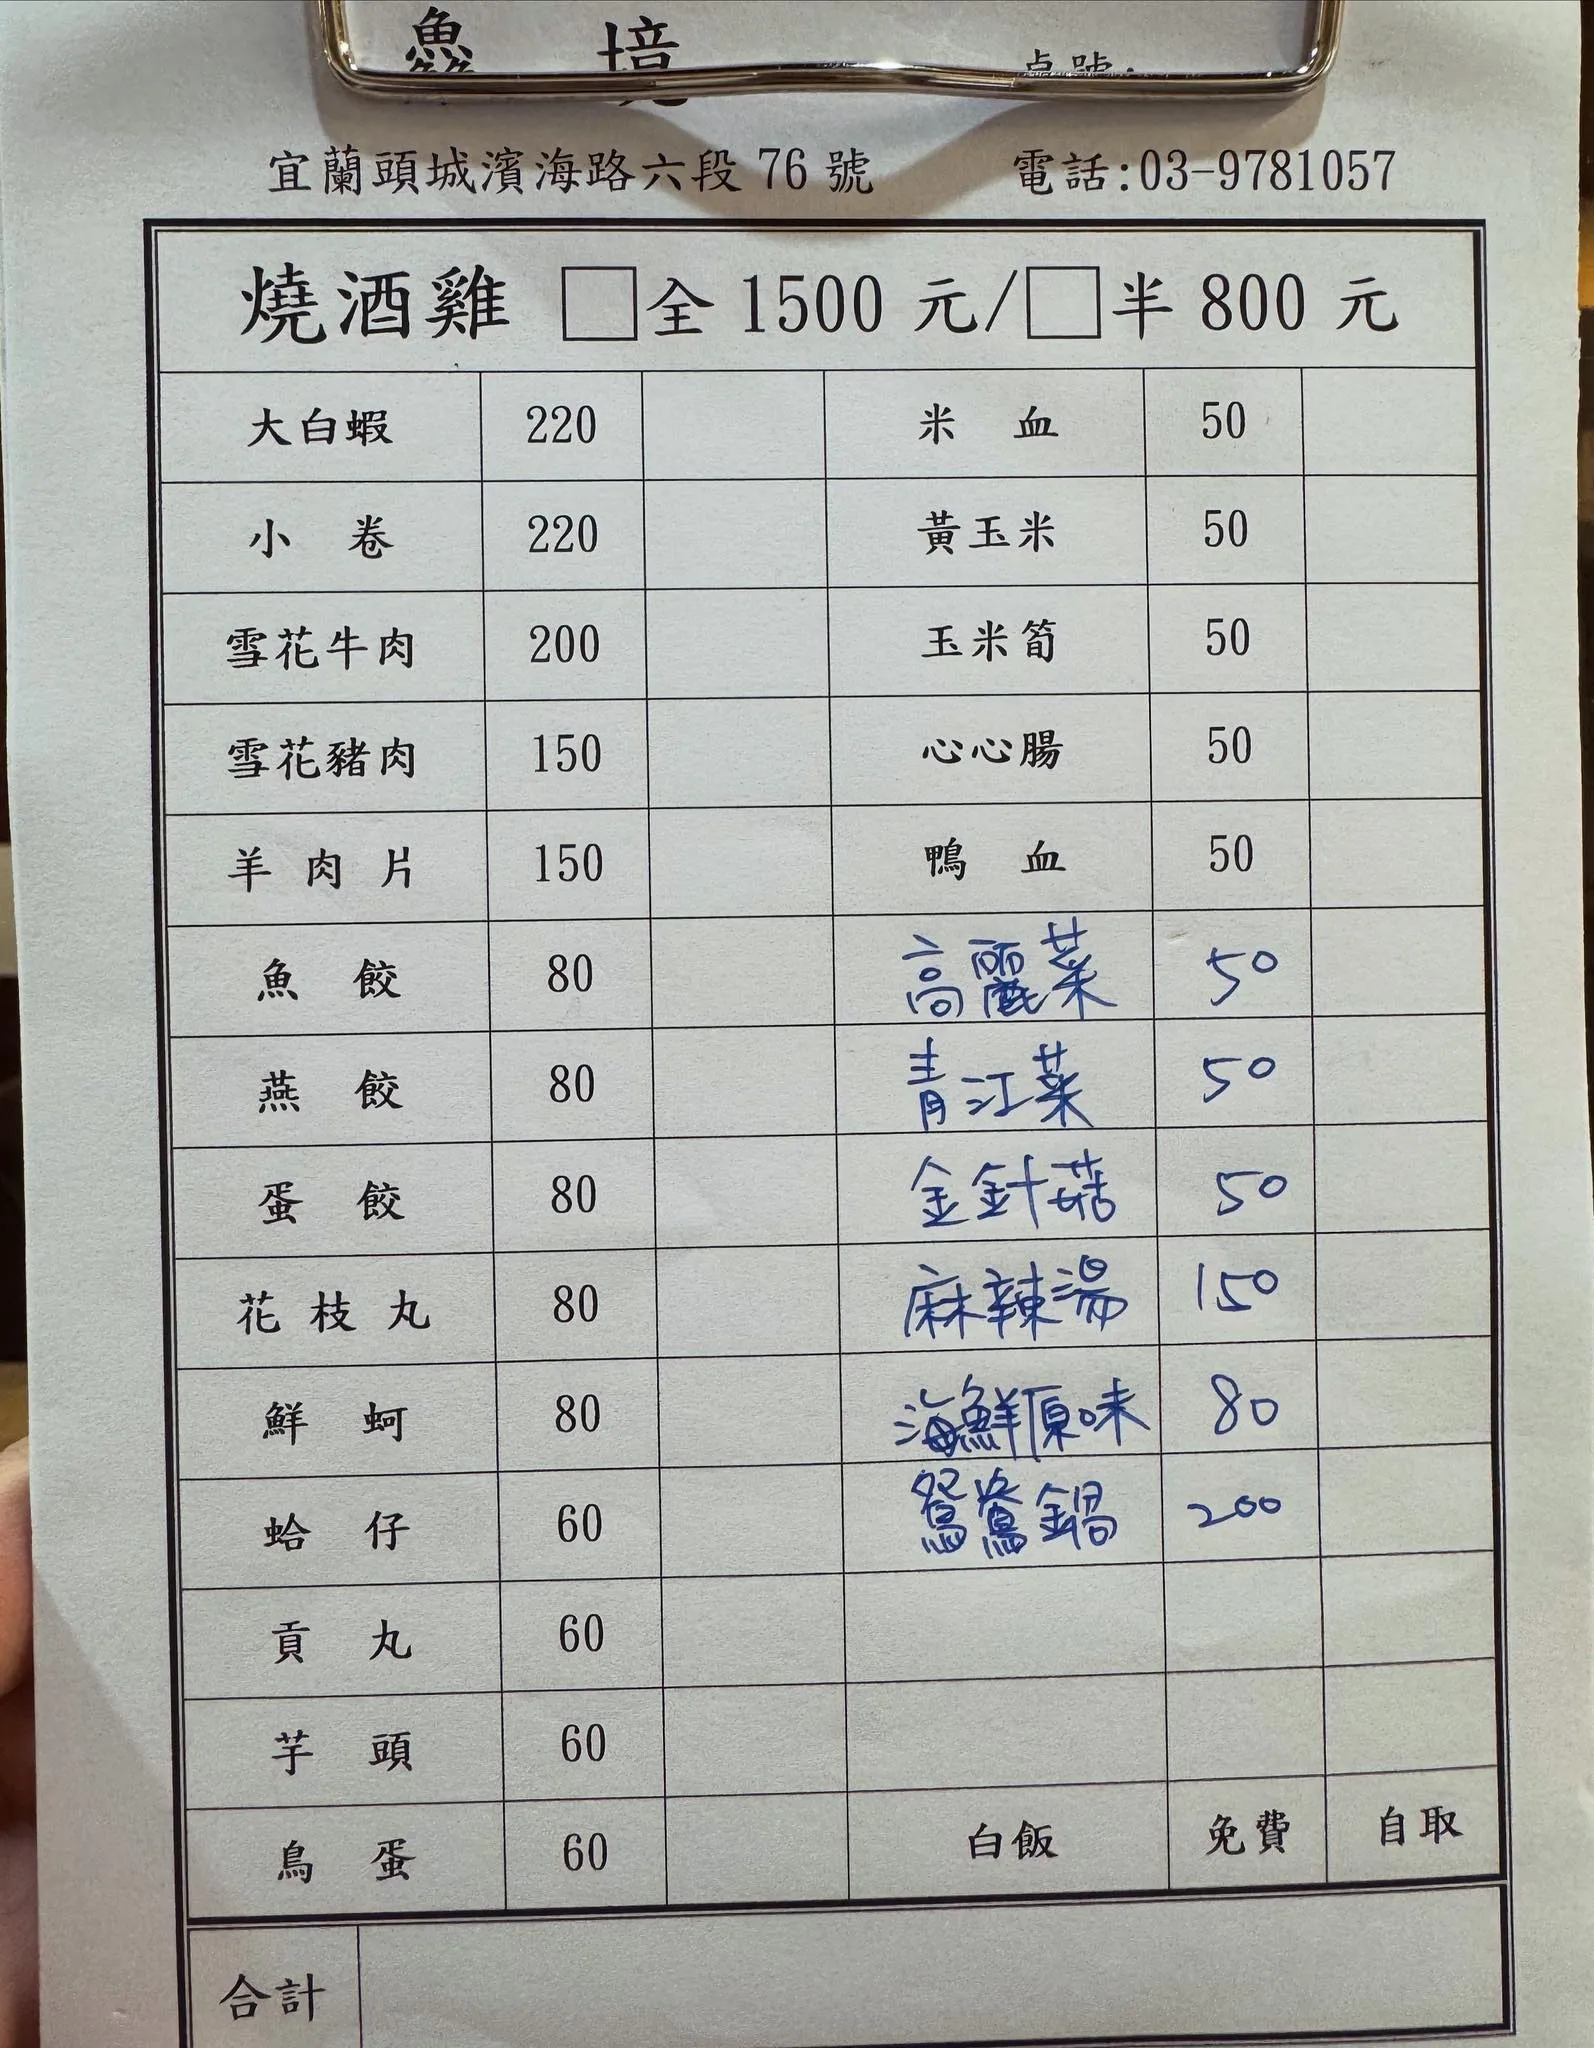 鱻 境 桌號:
宜蘭頭城濱海路六段 76 號 電話:03-9781057
燒酒雞 □全 1500 元/□半 800 元
大白蝦 220 米 血 50
小 卷 220 黃玉米 50
雪花牛肉 200 玉米筍 50
雪花豬肉 150 心心腸 50
羊 肉 片 150 鴨 血 50
魚 餃 80 高麗菜 50
燕 餃 80 青江菜 50
蛋 餃 80 金針菇 50
花 枝 丸 80 麻辣湯 150
鮮 蚵 80 海鮮原味 80
蛤 仔 60 鴛鴦鍋 200
貢 丸 60
芋 頭 60
鳥 蛋 60 白飯 免費 自取
合計